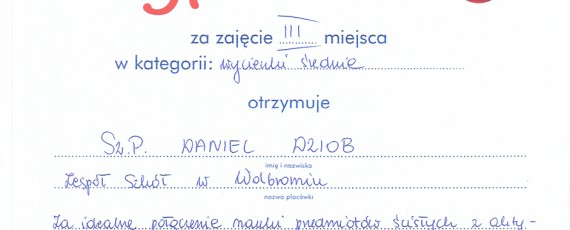 za zajęcie III miejsca
w kategorii: wycieczki średnie
otrzymuje
Sz.P. DANIEL DZIOB
imię i nazwisko
Zespół Szkół w Wolbromiu
nazwa placówki
Za idealne połączenie nauki przedmiotów ścisłych z akty-